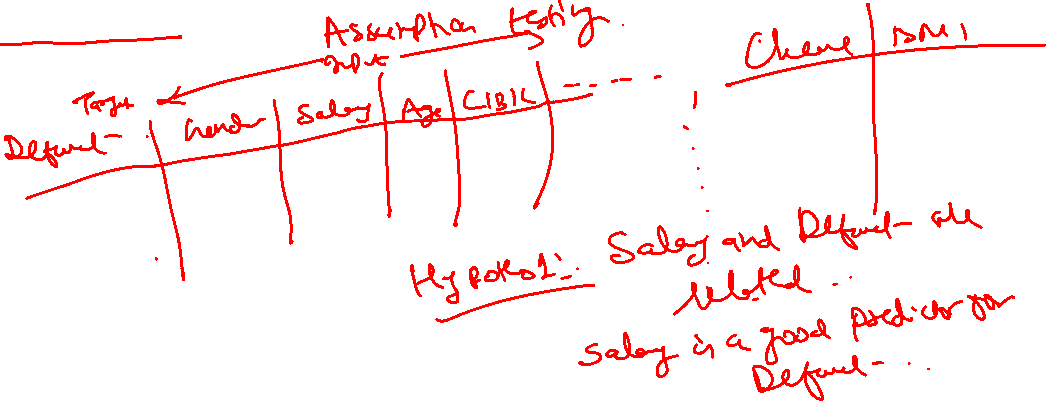 Assumption testing.
Input
Target
Default
Gender
Salary
Age
CIBIL
BMI
Hypothesis 1:
Salary and Default are
related..
Salary is a good predictor for
Default...